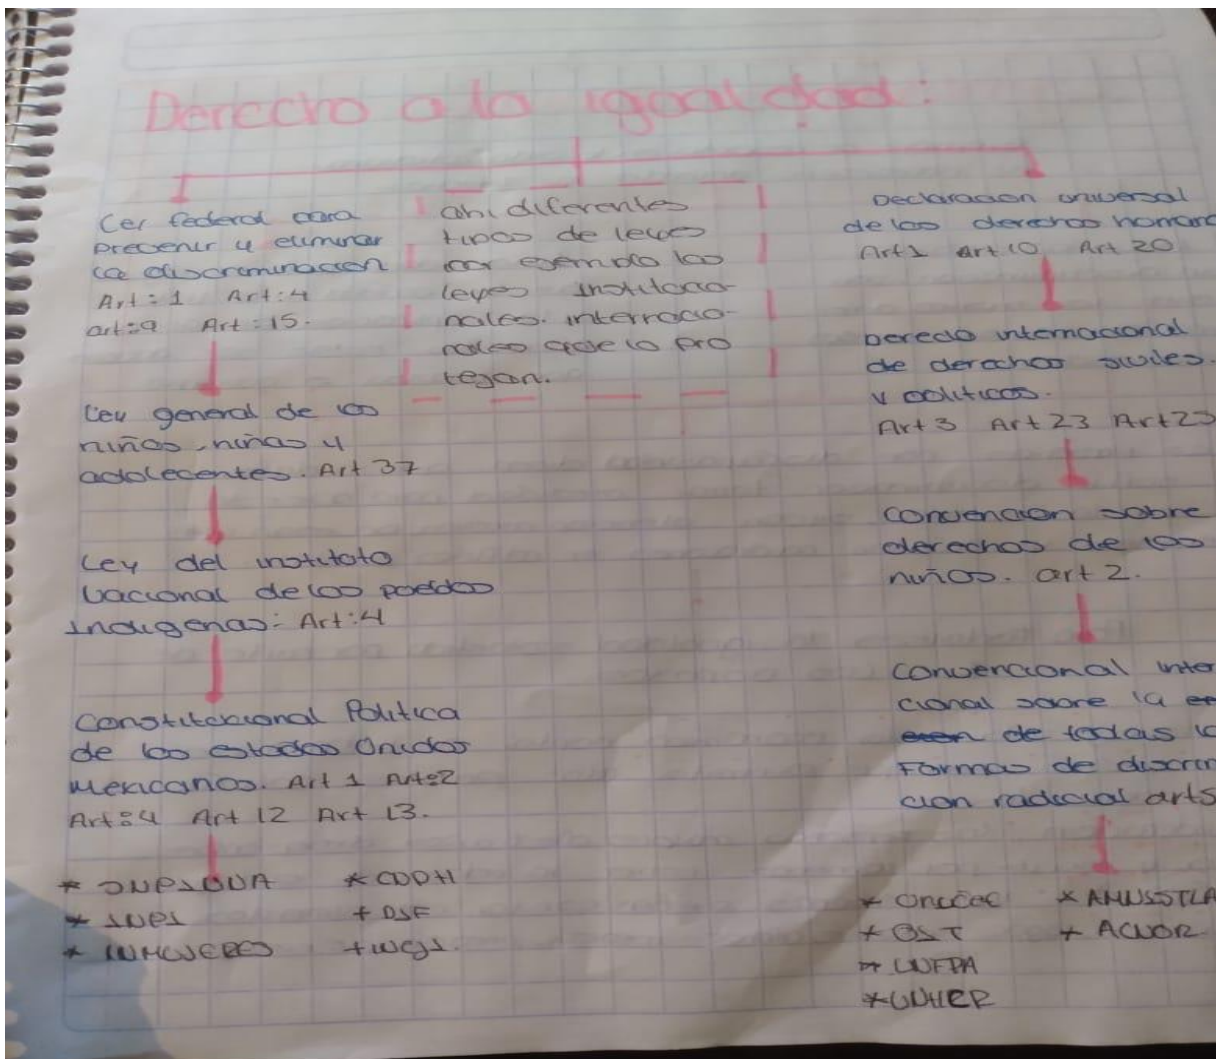 Derecho a la igualdad:
Ley federal para
prevenir y eliminar
la discriminacion
Art: 1 Art:4
art:9 Art:15.
Ley general de los
niños, niñas y
adolecentes. Art 37
Ley del instituto
Nacional de los
Indigenas: Art:4
Constitucional Politica
de los estados Unidos
Mexicanos. Art 1 Art:2
Art:4 Art 12 Art 13.
* INPI
* INMUJERES
ahi diferentes
tipos de leyes
por ejemplo las
leyes institucio-
nales. internacio-
nales que lo pro
tejan.
Declaracion universal
de los derechos
Art1 Art 10 Art 20
internacional
de derechos civiles.
y politicos.
Art 3 Art 23
Convencion sobre
derechos de los
niños. art 2.
Convencional inter
cional sobre la
de todas
Formas de
cion radicial
* UNFPA